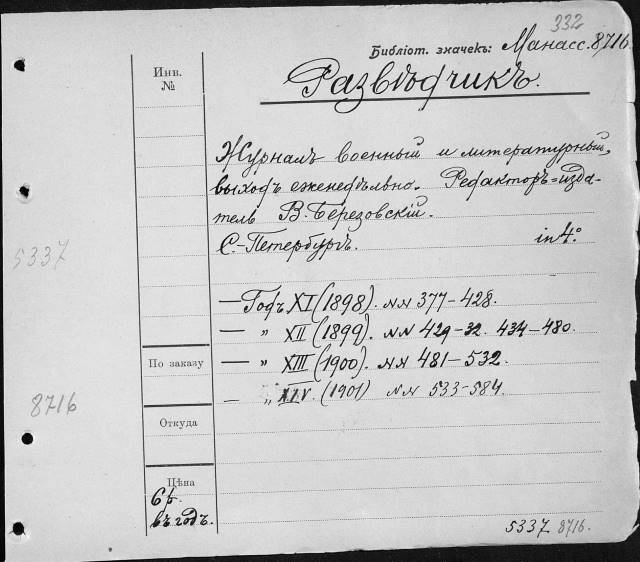 332
Библіот. значекъ: Манасс. 8716
Инв. №
Развѣдчикъ.
Журналъ военный и литературный,
выход. еженедѣльно. Редакторъ=изда-
тель В. Березовскій.
С.-Петербургъ. in 4°
5337
— Годъ XI (1898). №№ 377–428.
— „ XII (1899). №№ 429–32. 434–480.
По заказу
— „ XIII (1900). №№ 481–532.
— „ XIV. (1901) №№ 533–584.
8716
Откуда
Цѣна
6 р.
въ годъ.
5337 8716.